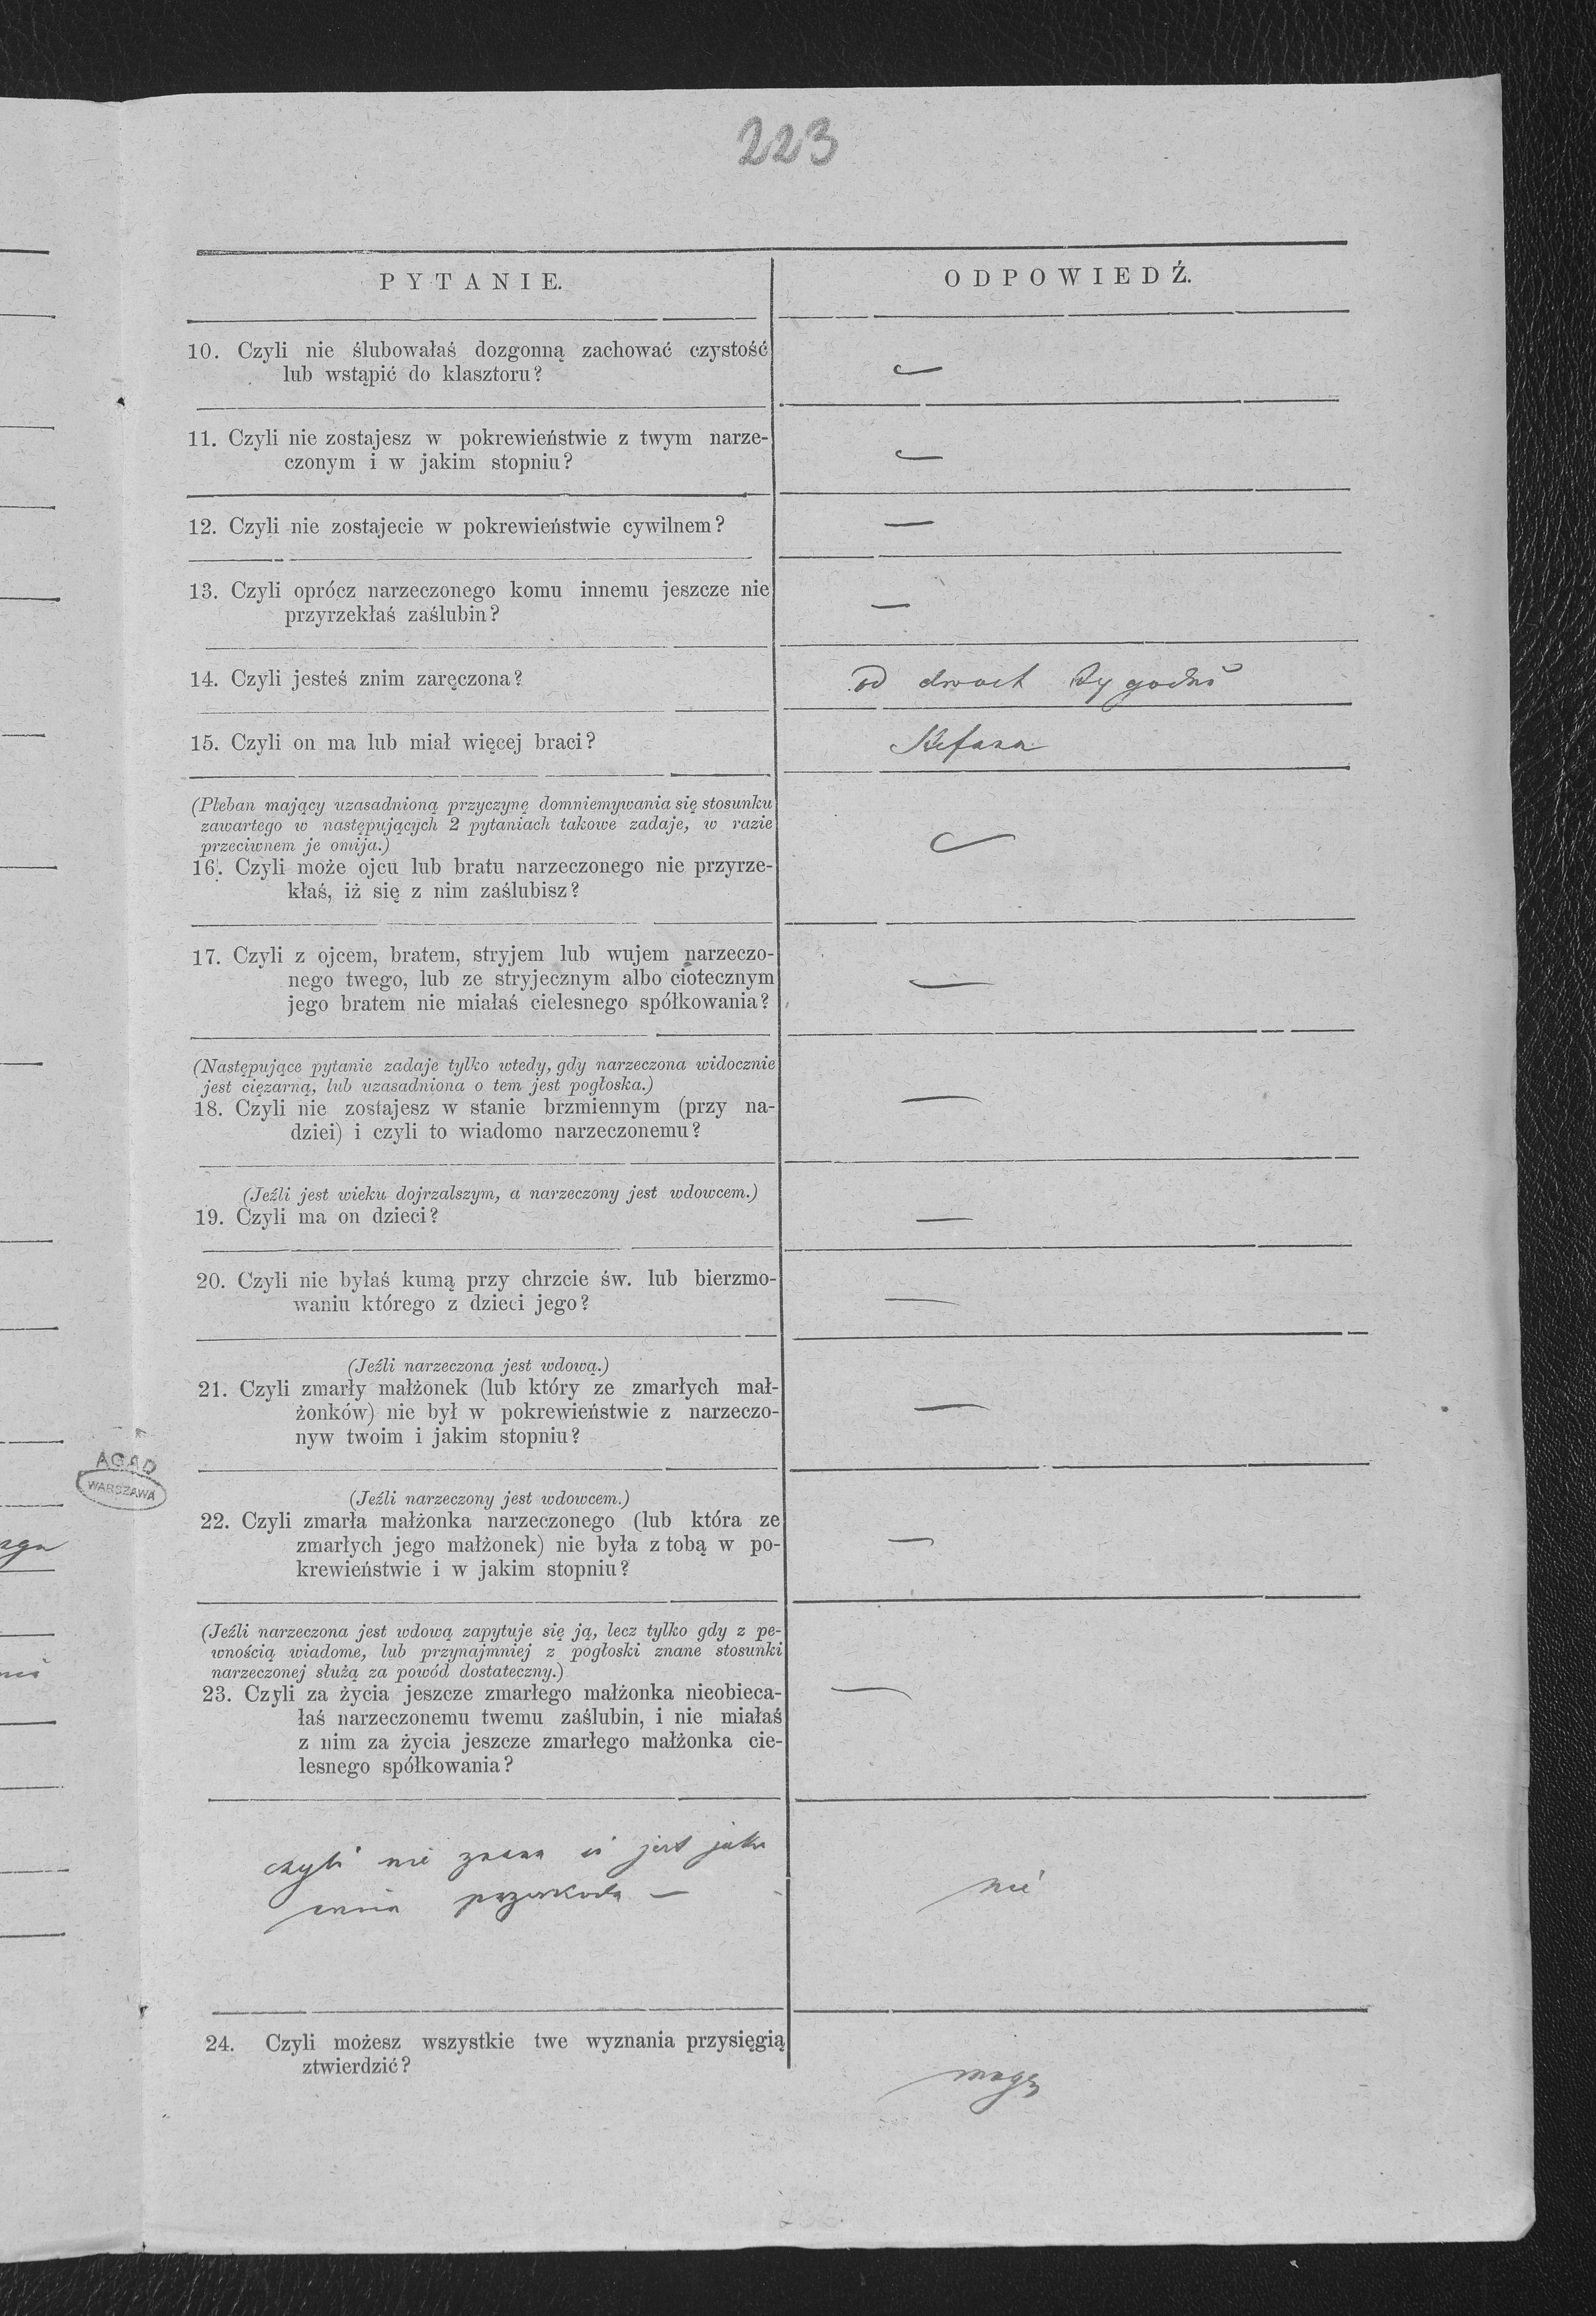 223
PYTANIE.
ODPOWIEDŹ.
10. Czyli nie ślubowałaś dozgonną zachować czystość
lub wstąpić do klasztoru?
—
11. Czyli nie zostajesz w pokrewieństwie z twym narze-
czonym i w jakim stopniu?
—
12. Czyli nie zostajecie w pokrewieństwie cywilnem?
—
13. Czyli oprócz narzeczonego komu innemu jeszcze nie
przyrzekłaś zaślubin?
—
14. Czyli jesteś znim zaręczona?
od dwoch tygodni
15. Czyli on ma lub miał więcej braci?
Stefana
(Pleban mający uzasadnioną przyczynę domniemywania się stosunku
zawartego w następujących 2 pytaniach takowe zadaje, w razie
przeciwnem je omija.)
16. Czyli może ojcu lub bratu narzeczonego nie przyrze-
kłaś, iż się z nim zaślubisz?
—
17. Czyli z ojcem, bratem, stryjem lub wujem narzeczo-
nego twego, lub ze stryjecznym albo ciotecznym
jego bratem nie miałaś cielesnego spółkowania?
—
(Następujące pytanie zadaje tylko wtedy, gdy narzeczona widocznie
jest ciężarną, lub uzasadniona o tem jest pogłoska.)
18. Czyli nie zostajesz w stanie brzmiennym (przy na-
dziei) i czyli to wiadomo narzeczonemu?
—
(Jeźli jest wieku dojrzalszym, a narzeczony jest wdowcem.)
19. Czyli ma on dzieci?
—
20. Czyli nie byłaś kumą przy chrzcie św. lub bierzmo-
waniu którego z dzieci jego?
—
(Jeźli narzeczona jest wdową.)
21. Czyli zmarły małżonek (lub który ze zmarłych mał-
żonków) nie był w pokrewieństwie z narzeczo-
nyw twoim i jakim stopniu?
—
(Jeźli narzeczony jest wdowcem.)
22. Czyli zmarła małżonka narzeczonego (lub która ze
zmarłych jego małżonek) nie była z tobą w po-
krewieństwie i w jakim stopniu?
—
(Jeźli narzeczona jest wdową zapytuje się ją, lecz tylko gdy z pe-
wnością wiadome, lub przynajmniej z pogłoski znane stosunki
narzeczonej służą za powód dostateczny.)
23. Czyli za życia jeszcze zmarłego małżonka nieobieca-
łaś narzeczonemu twemu zaślubin, i nie miałaś
z nim za życia jeszcze zmarłego małżonka cie-
lesnego spółkowania?
—
czyli nie znana ci jest jaka
inna przeszkoda —
nie
24. Czyli możesz wszystkie twe wyznania przysięgią
ztwierdzić?
mogę
AGAD
WARSZAWA